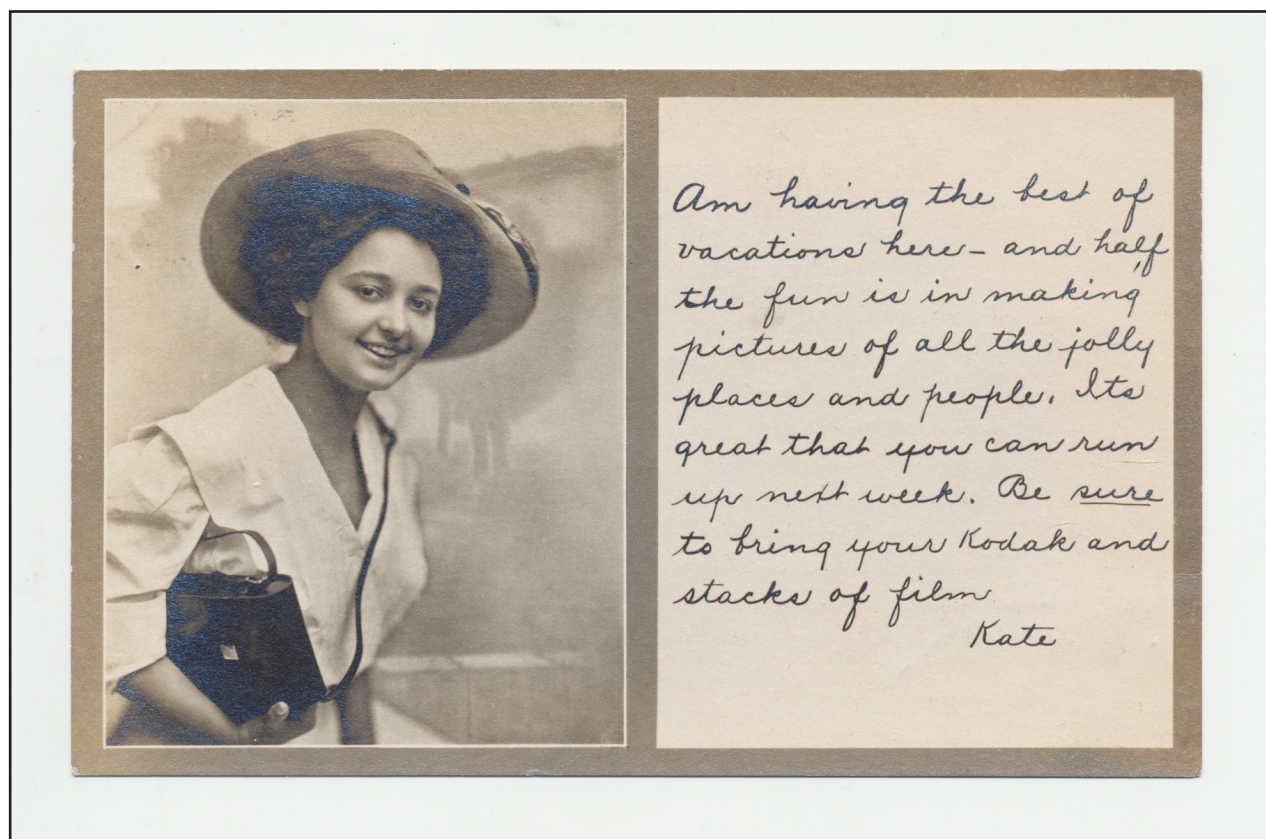 Am having the best of
vacations here - and half
the fun is in making
pictures of all the jolly
places and people. Its
great that you can run
up next week. Be sure
to bring your Kodak and
stacks of film
Kate